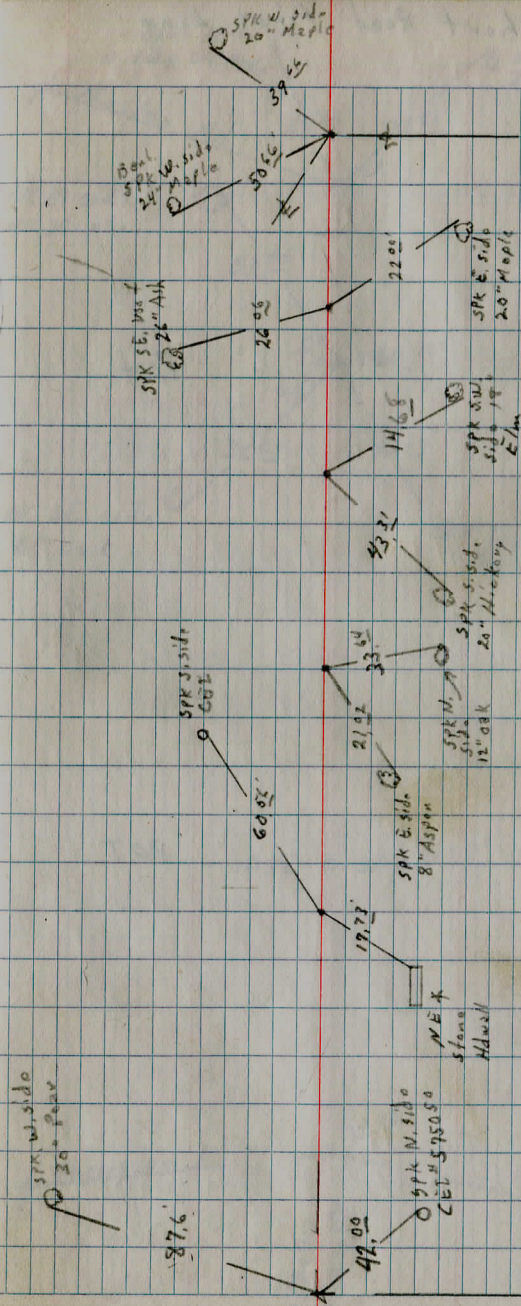 SPK W. side
20" Maple
39
Bent
SPK W. side
Maple
50 56'
22 00'
SPK E. side
20" Maple
SPK SE.
26" Ash
26 06
14.68
SPK S.W.
side 18"
Elm
43.31
SPK S. side
20" Hickory
33. 64
SPK N.
side
12" oak
21.02
SPK E. side
8" Aspen
SPK S. side
CEI
60.06'
17.73'
NE
Stone
Hdwall
SPK. W. side
30"
87.6'
42.00
SPK N. side
CEI # 575050